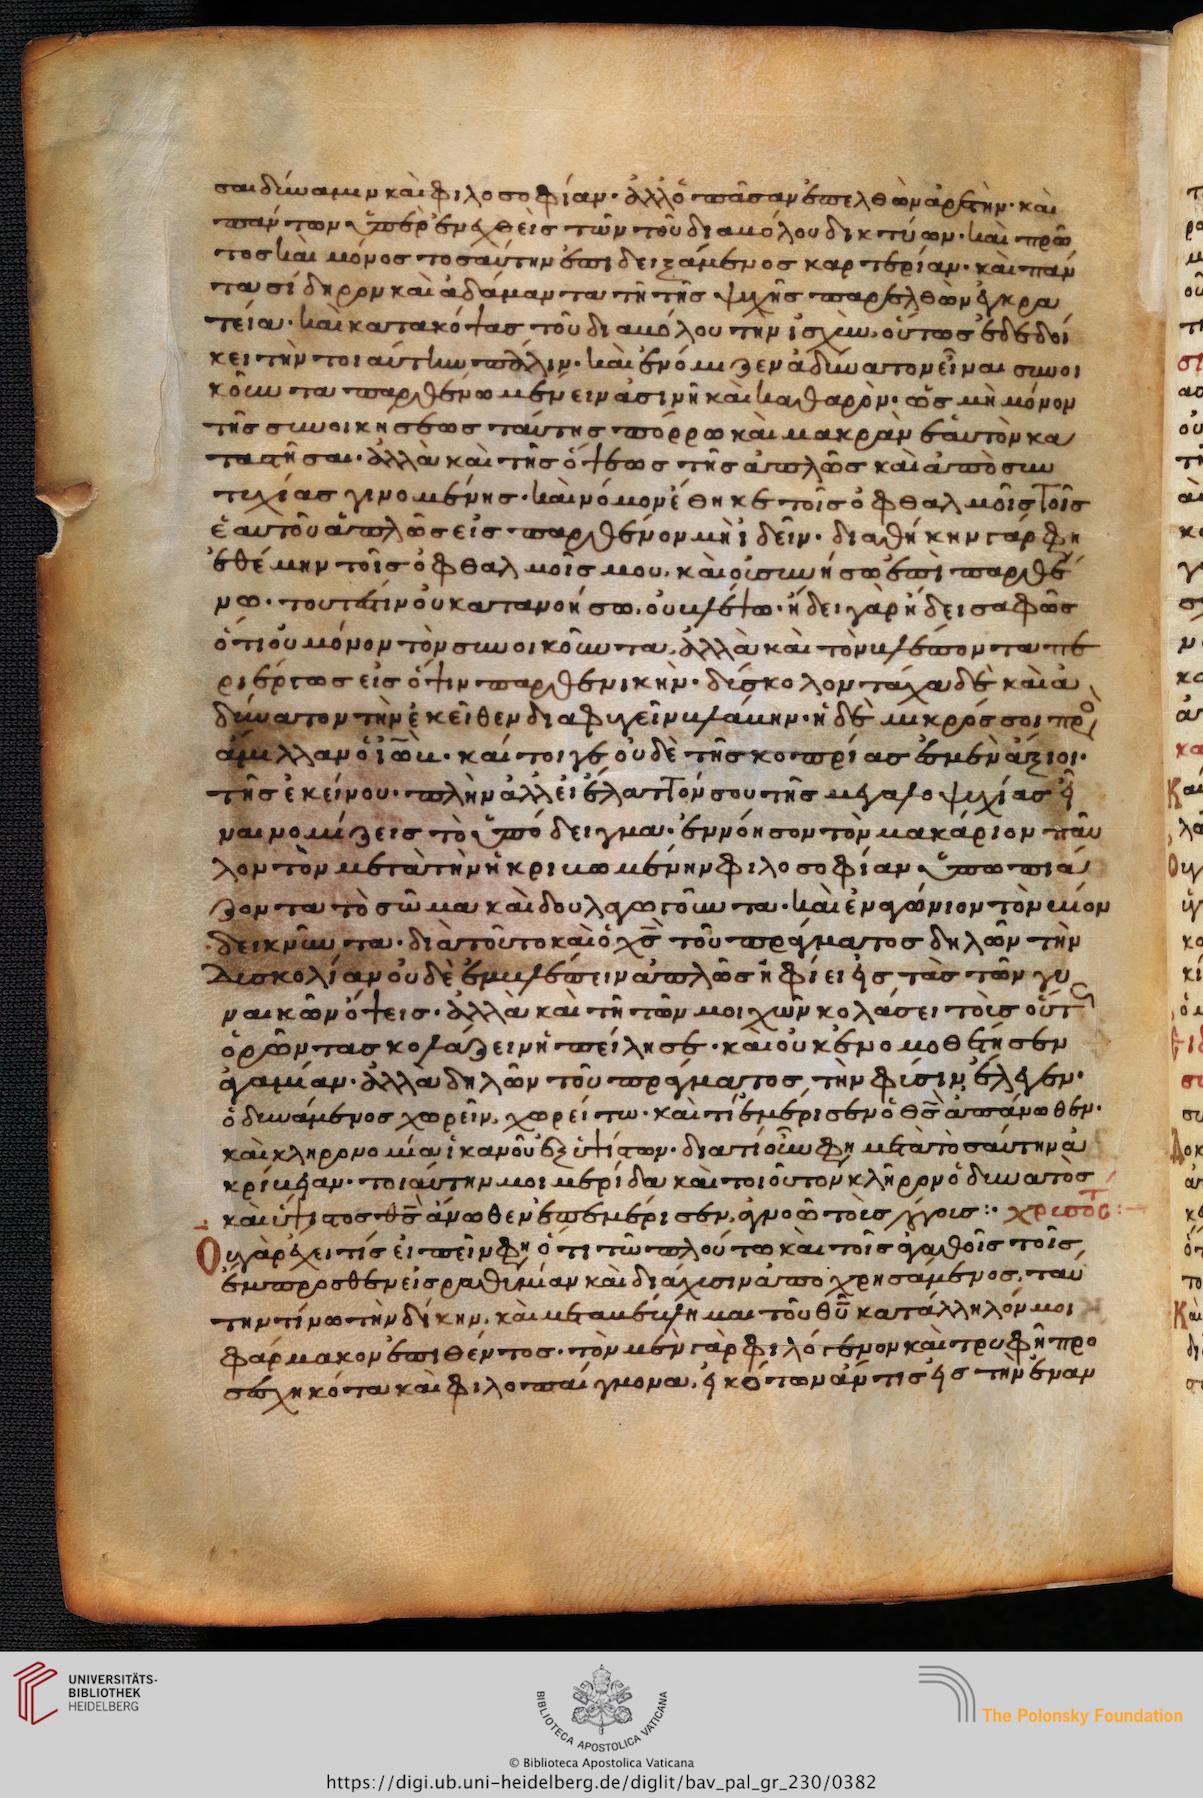 σαι δύναμιν καὶ φιλοσοφίαν· ἀλλ' ὁ πᾶσαν ἐπελθὼν ἀρετὴν· καὶ
πάντων ὑπερενεχθεὶς τῶν τοῦ διαβόλου δικτύων· καὶ πρῶ
τος καὶ μόνος τοσαύτην ἐπιδειξάμενος καρτερίαν· καὶ πάν
τα σίδηρον καὶ ἀδάμαντα τῇ τῆς ψυχῆς παρελθὼν ἐγκρα
τεία· καὶ κατακόψας τοῦ διαβόλου τὴν ἰσχὺν, οὕτως ἐδεδοί
κει τὴν τοιαύτην πάλην· καὶ ἐνόμιζεν ἀδύνατον εἶναι συνοι
κοῦντα παρθένω μένειν ἀσινῆ καὶ καθαρὸν· ὡς μὴ μόνον
τῆς συνοικήσεως ταύτης πόρρω καὶ μακρὰν ἑαυτὸν κα
ταστῆσαι· ἀλλὰ καὶ τῆς ὄψεως τῆς ἁπλῶς καὶ ἀπὸ συν
τυχίας γινομένης· καὶ νόμον ἔθηκε τοῖς ὀφθαλμοῖς τοῖς
ἑαυτοῦ ἁπλῶς εἰς παρθένον μὴ ἰδεῖν· διαθήκην γάρ φη
ἐθέμην τοῖς ὀφθαλμοῖς μου, καὶ οὐ συνήσω ἐπὶ παρθέ
νω· τουτέστιν οὐ κατανοήσω, οὐ βλέψω· ἤδει γὰρ ἤδει σαφῶς
ὅτι οὐ μόνον τὸν συνοικοῦντα, ἀλλὰ καὶ τὸν βλέποντα πε
ριέργως εἰς ὄψιν παρθενικὴν· δύσκολον τάχα δὲ καὶ ἀ
δύνατον τὴν ἐκεῖθεν διαφυγεῖν βλάβην· ἢ δὲ μικρός σοι πρὸς
ἅμιλλαν ὁ ἰώβ· καίτοιγε οὐδὲ τῆς κοπρίας ἐσμὲν ἄξιοι·
τῆς ἐκείνου· πλὴν ἀλλ' εἰ ἔλαττόν σου τῆς μεγαλοψυχίας εἶ
ναι νομίζεις τὸ ὑπόδειγμα· ἐννόησον τὸν μακάριον παῦ
λον τὸν μετὰ τὴν ἠκριβωμένην φιλοσοφίαν ὑπωπιά
ζοντα τὸ σῶμα καὶ δουλαγωγοῦντα· καὶ ἐναγώνιον τὸν βίον
δεικνῦντα· διὰ τοῦτο καὶ ὁ χς τοῦ πράγματος δηλῶν τὴν
δυσκολίαν οὐδὲ ἐμβλέπειν ἁπλῶς ἠφίει εἰς τὰς τῶν γυ
ναικῶν ὄψεις· ἀλλὰ καὶ τῇ τῶν μοιχῶν κολάσει τοὺς οὕτως
ὁρῶντας κολάζειν ἠπείλησε· καὶ οὐκ ἐνομοθέτησεν
ἀγαμίαν· ἀλλὰ δηλῶν τοῦ πράγματος τὴν φύσιν ἔλεγεν·
ὁ δυνάμενος χωρεῖν, χωρείτω· καὶ τί ἐμέρισεν ὁ θς ἀπάνωθεν·
καὶ κληρονομία ἱκανοῦ ἐξ ὑψίστων· διατί οὖν φη μετὰ τοσαύτην ἀ
κρίβειαν· τοιαύτην μοι μερίδα καὶ τοιοῦτον κλῆρον ὁ δυνατὸς
καὶ ὕψιστος θς ἄνωθεν ἐπεμέρισεν,
Οὐ γὰρ ἔχει τίς εἰπεῖν φη ὅτι τῶ πλούτω καὶ τοῖς ἀγαθοῖς τοῖς
ἔμπροσθεν εἰς ραθυμίαν καὶ διάχυσιν ἀποχρησάμενος, ταύ
την τίνω τὴν δίκην, καὶ μεταμέβλημαι τοῦ θυ κατάλληλόν μοι
φάρμακον ἐπιθέντος· τὸν μὲν γὰρ φιλόγενον καὶ τρυφῆ προ
σεσχηκότα καὶ φιλοπαίγμονα, εἰκότως ἄν τις εἰς τὴν ἐναν
UNIVERSITÄTS-
BIBLIOTHEK
HEIDELBERG
BIBLIOTECA APOSTOLICA VATICANA
The Polonsky Foundation
© Biblioteca Apostolica Vaticana
https://digi.ub.uni-heidelberg.de/diglit/bav_pal_gr_230/0382